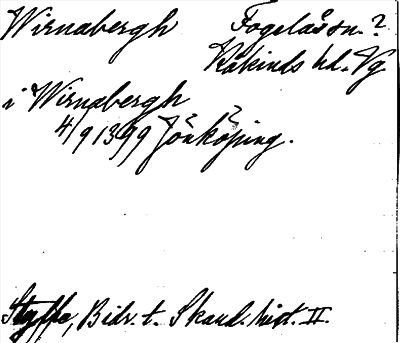 Wirnabergh Fogelås sn.?
Kåkinds hd. Vg
i Wirnabergh
4/9 1399 Jönköping.
Styffe, Bidr. t. Skand. hist. II.